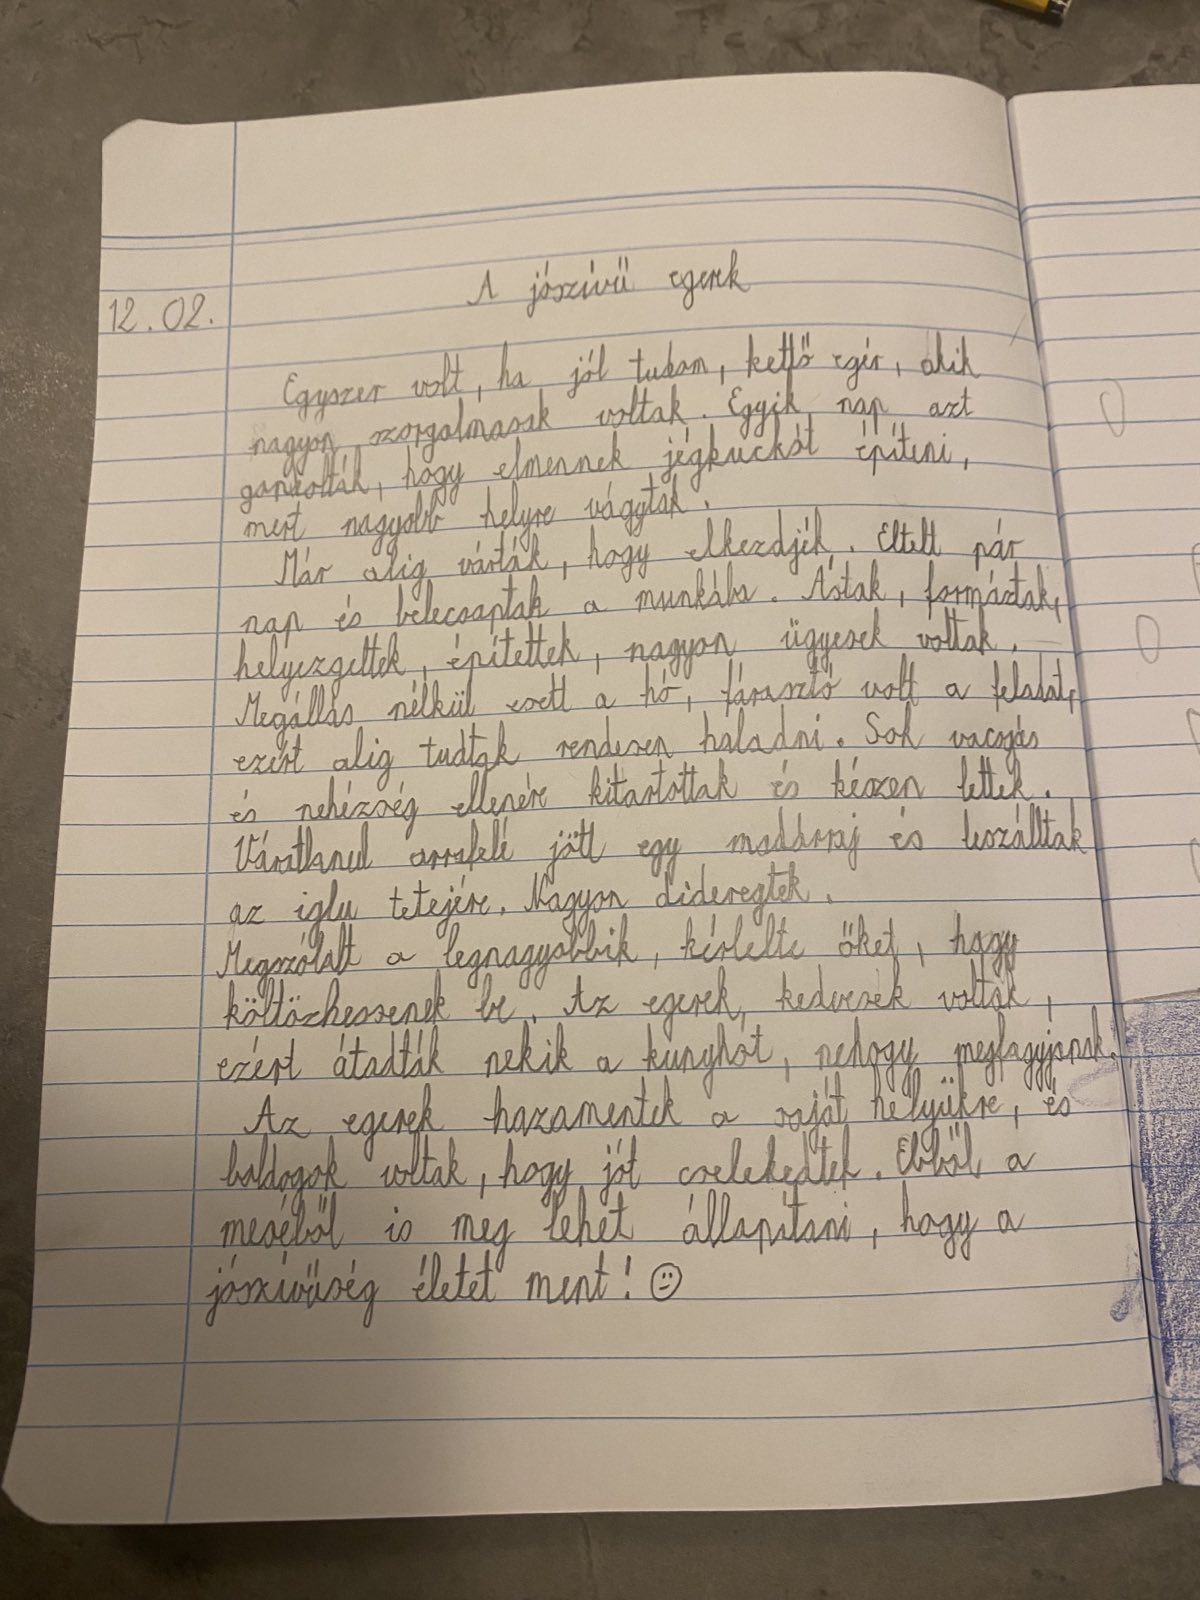 A jószívű egerek
12.02.
Egyszer volt, ha jól tudom, kettő egér, akik
nagyon szorgalmasak voltak. Egyik nap azt
gondolták, hogy elmennek jégkuckót építeni,
mert nagyobb helyre vágytak.
Már alig várták, hogy elkezdjék. Eltelt pár
nap és belecsaptak a munkába. Ástak, formáztak,
helyezgettek, építettek, nagyon ügyesek voltak.
Megállás nélkül esett a hó, fárasztó volt a feladat,
ezért alig tudtak rendesen haladni. Sok vacogás
és nehézség ellenére kitartottak és készen lettek.
Váratlanul arrafelé jött egy madárraj és leszálltak
az iglu tetejére. Nagyon dideregtek.
Megszólalt a legnagyobbik, kérlelte őket, hogy
költözhessenek be. Az egerek kedvesek voltak,
ezért átadták nekik a kunyhót, nehogy megfagyjanak.
Az egerek hazamentek a saját helyükre, és
boldogok voltak, hogy jót cselekedtek. Ebből a
meséből is meg lehet állapítani, hogy a
jószívűség életet ment! ☺